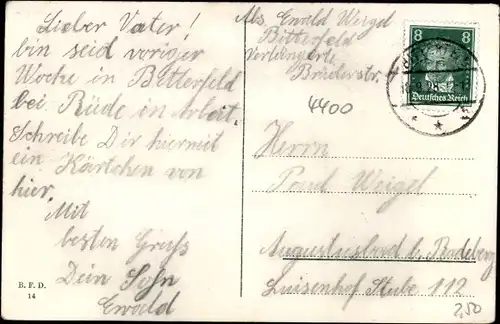 Lieber Vater!
bin seid voriger
Woche in Bitterfeld
bei Rüde in Arbeit.
Schreibe Dir hiermit
ein Kärtchen von
hier.
Mit
besten Gruß
Dein Sohn
Ewald
B. F. D.
14
Abs. Ewald Weigel
Bitterfeld
Verlängerte
Brüderstr.
4400
8 8
Deutsches Reich
Herrn
Paul Weigel
Augustusbad b. Radeberg
Luisenhof Stube 112
2,50